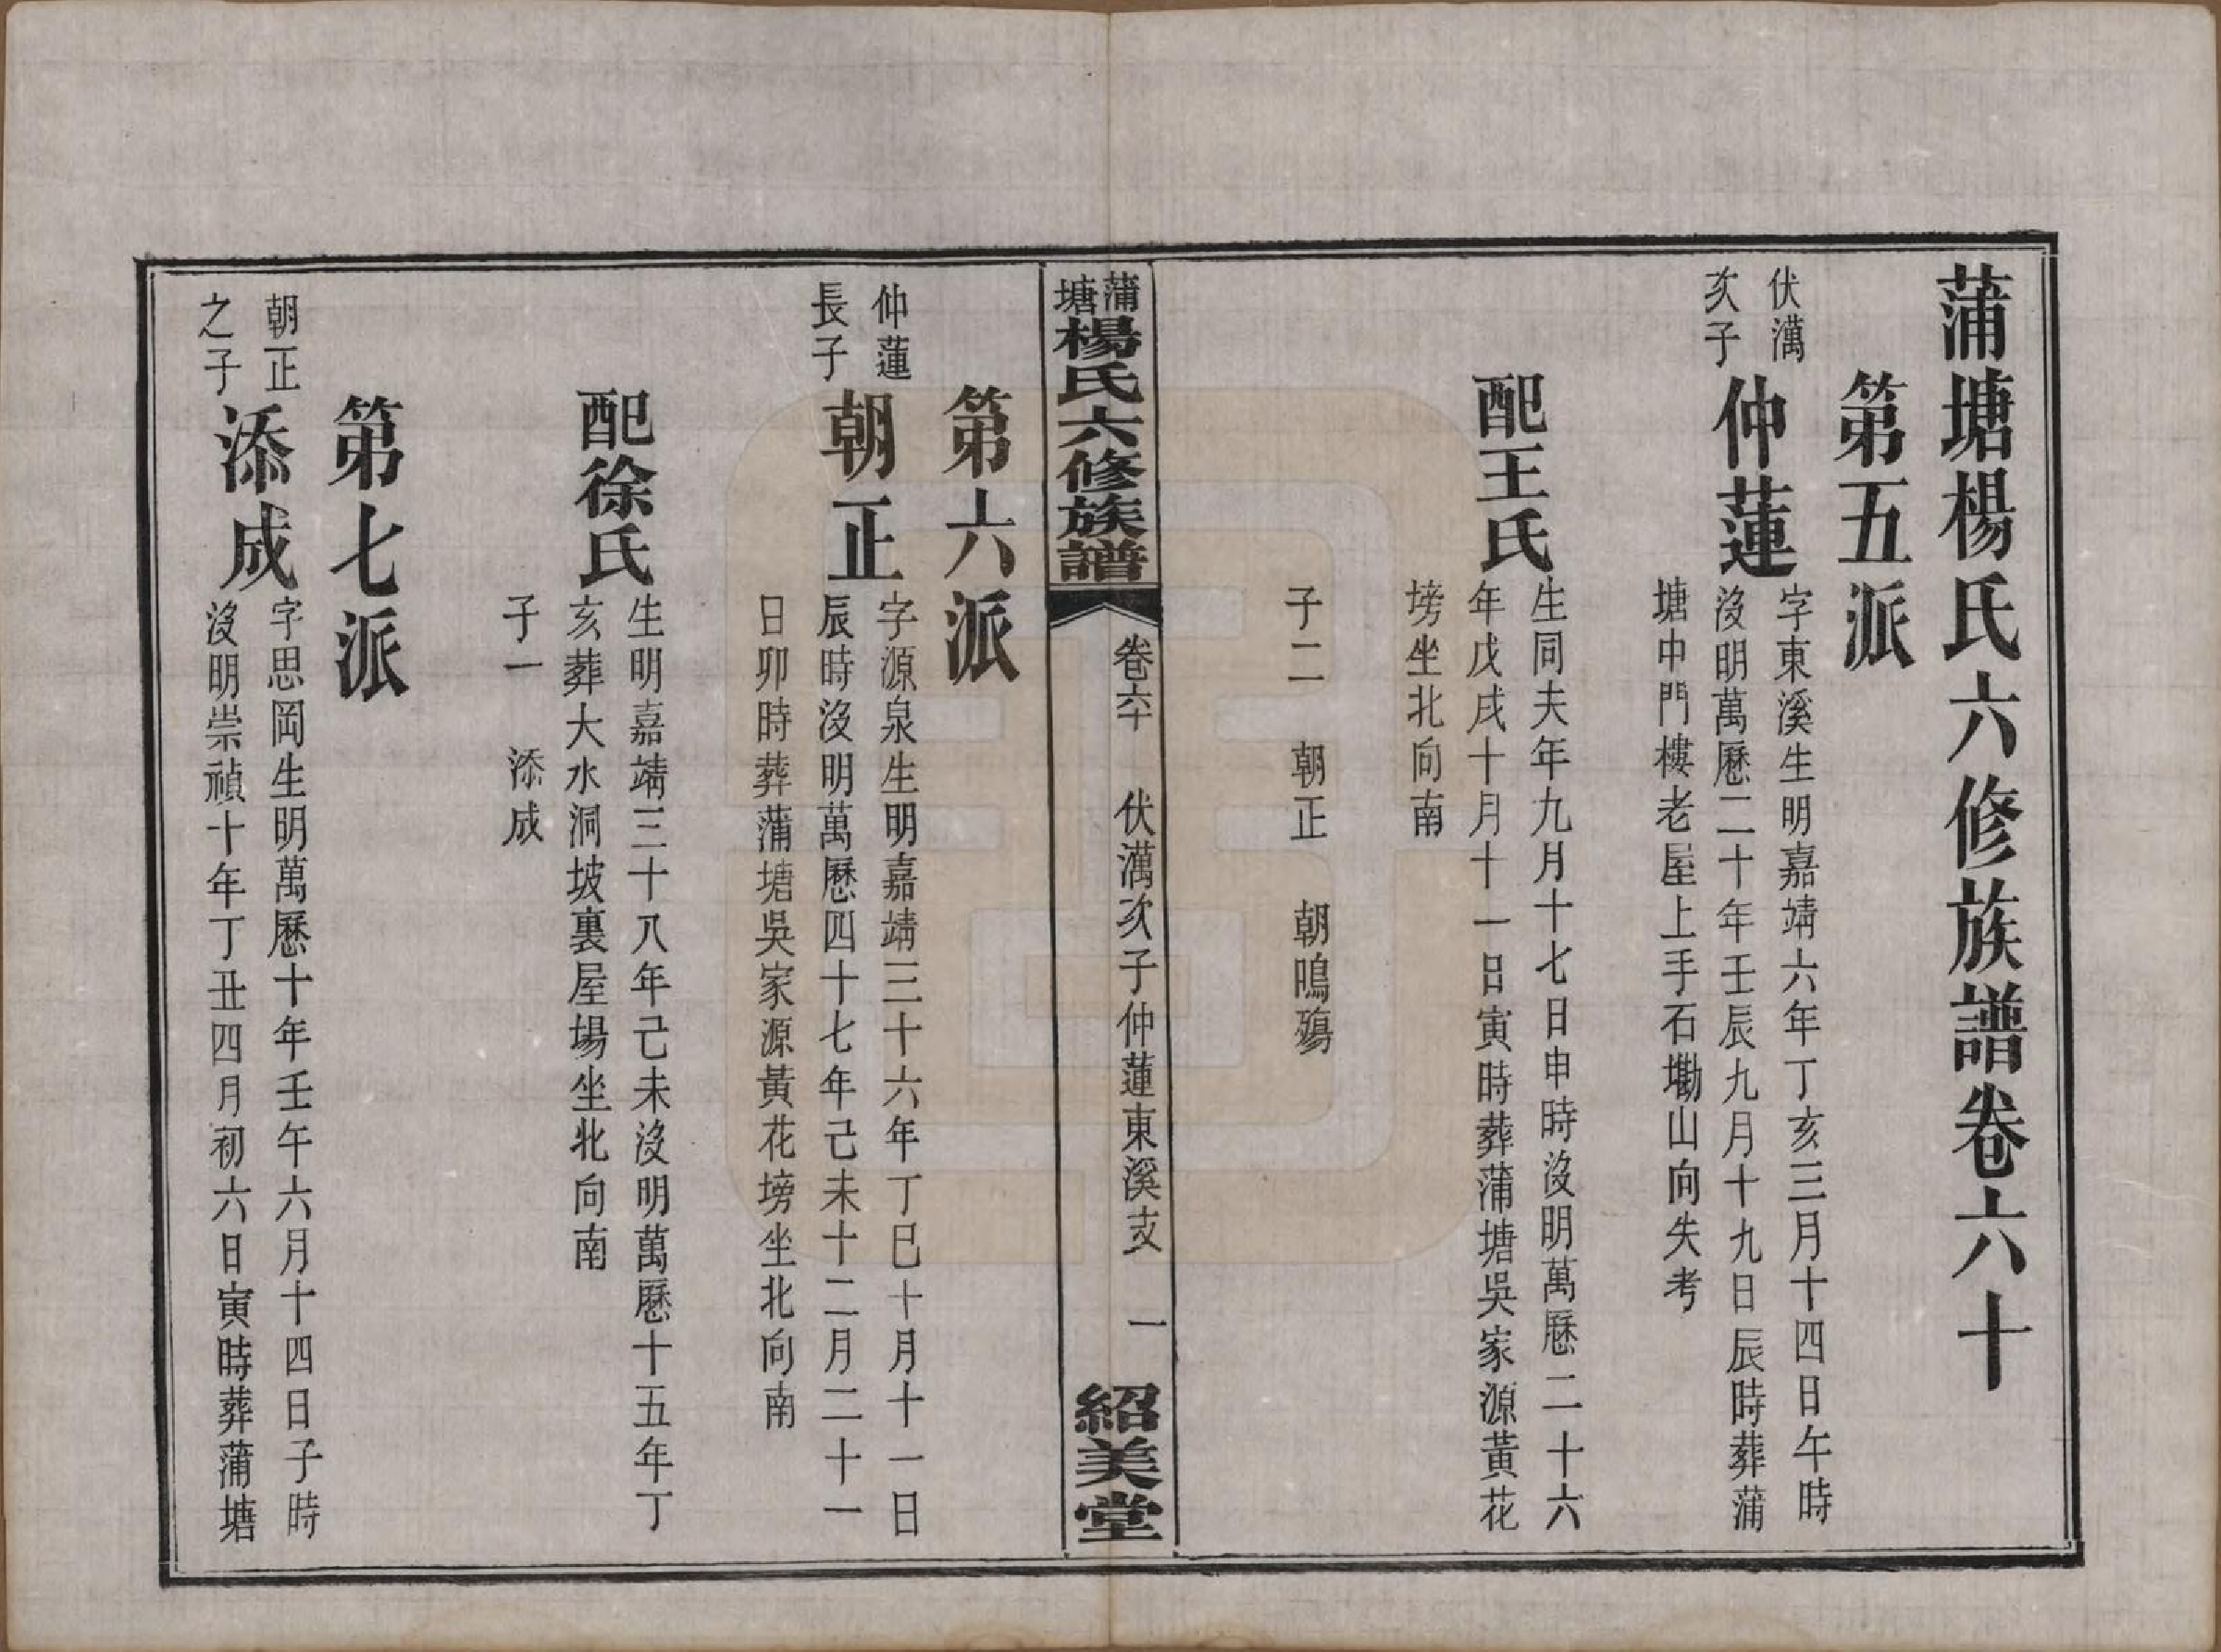 蒲塘楊氏六修族譜卷六十
第五派
伏澫
次子
仲蓮
字東溪生明嘉靖六年丁亥三月十四日午時
沒明萬曆二十年壬辰九月十九日辰時葬蒲
塘中門樓老屋上手石墈山向失考
配王氏
生同夫年九月十七日申時沒明萬曆二十六
年戊戌十月十一日寅時葬蒲塘吳家源黃花
塝坐北向南
子二 朝正 朝鳴殤
蒲塘楊氏六修族譜
卷六十 伏澫次子仲蓮東溪支 一
紹美堂
第六派
仲蓮
長子
朝正
字源泉生明嘉靖三十六年丁巳十月十一日
辰時沒明萬曆四十七年己未十二月二十一
日卯時葬蒲塘吳家源黃花塝坐北向南
配徐氏
生明嘉靖三十八年己未沒明萬曆十五年丁
亥葬大水洞坡裏屋場坐北向南
子一 添成
第七派
朝正
之子
添成
字思岡生明萬曆十年壬午六月十四日子時
沒明崇禎十年丁丑四月初六日寅時葬蒲塘